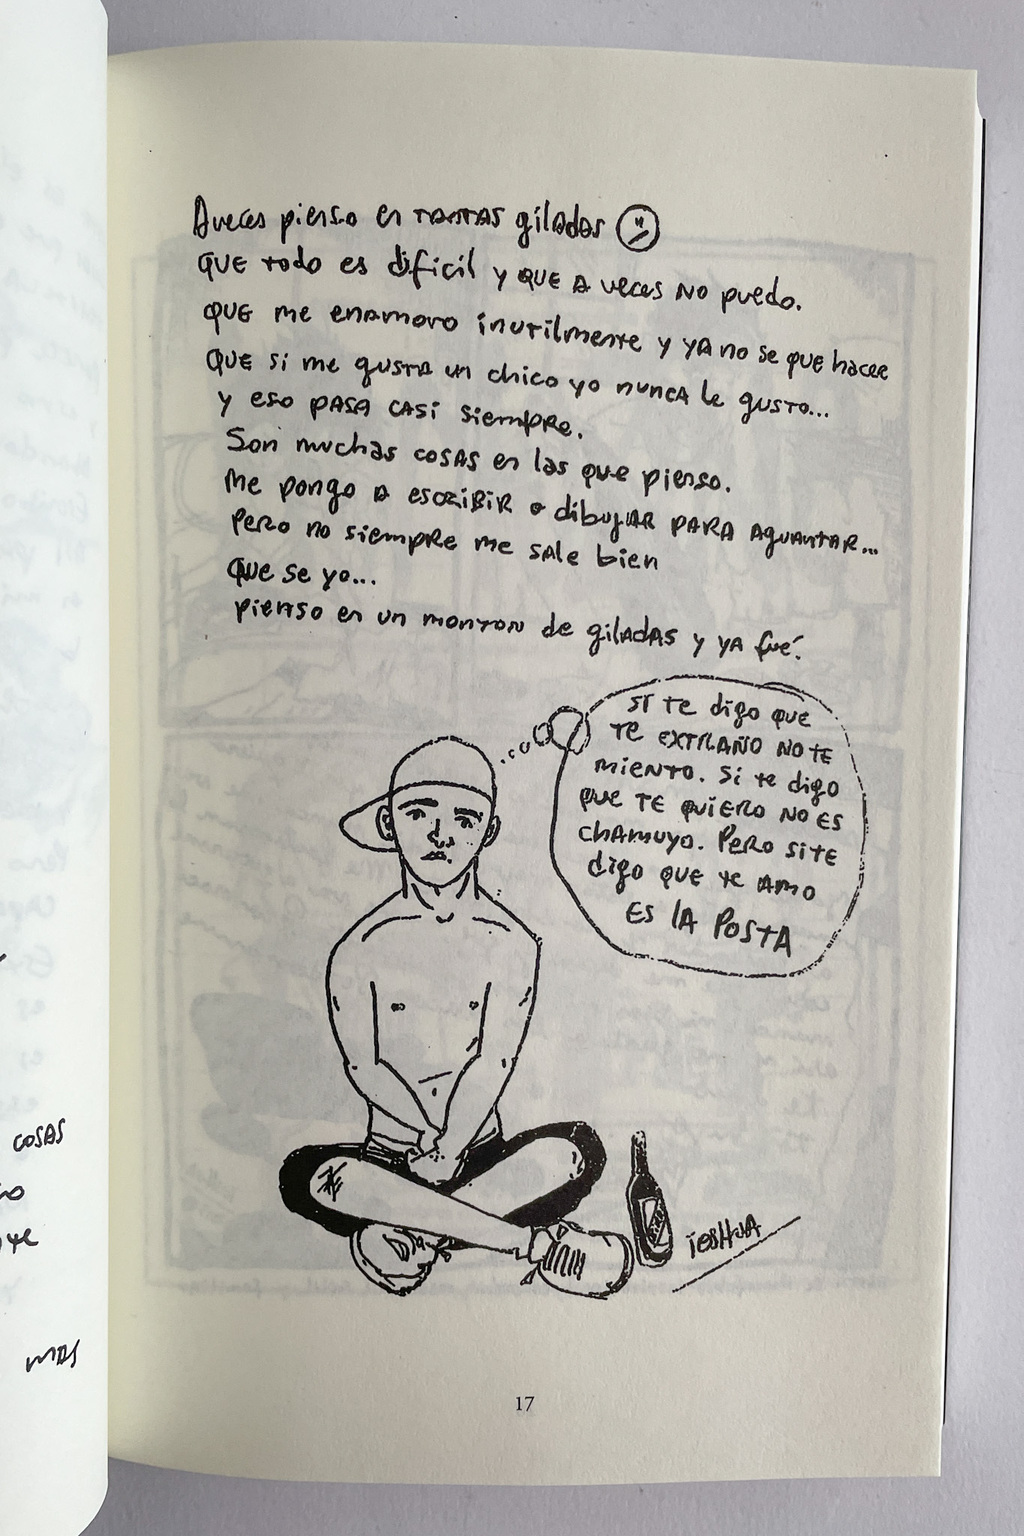 A veces pienso en TANTAS giladas
QUE todo es dificil y QUE A veces NO puedo.
QUE me enamoro inutilmente y YA no se que hacer
QUE si me gusta un chico yo nunca le gusto...
y eso PASA CASI siempre.
Son muchas COSAS en las que pienso.
Me pongo A ESCRIBIR o dibujAR PARA AguantAR...
Pero no siempre me sale bien
Que se yo...
pienso en un monton de gilADAS y YA fué.
SI TE digo que
TE EXTRAÑO NO TE
MIENTO. Si te digo
que TE QUIERO NO ES
CHAMUYO. PERO SI TE
digo QUE te AMO
ES LA POSTA
iesHuA
17
COSAS
mas